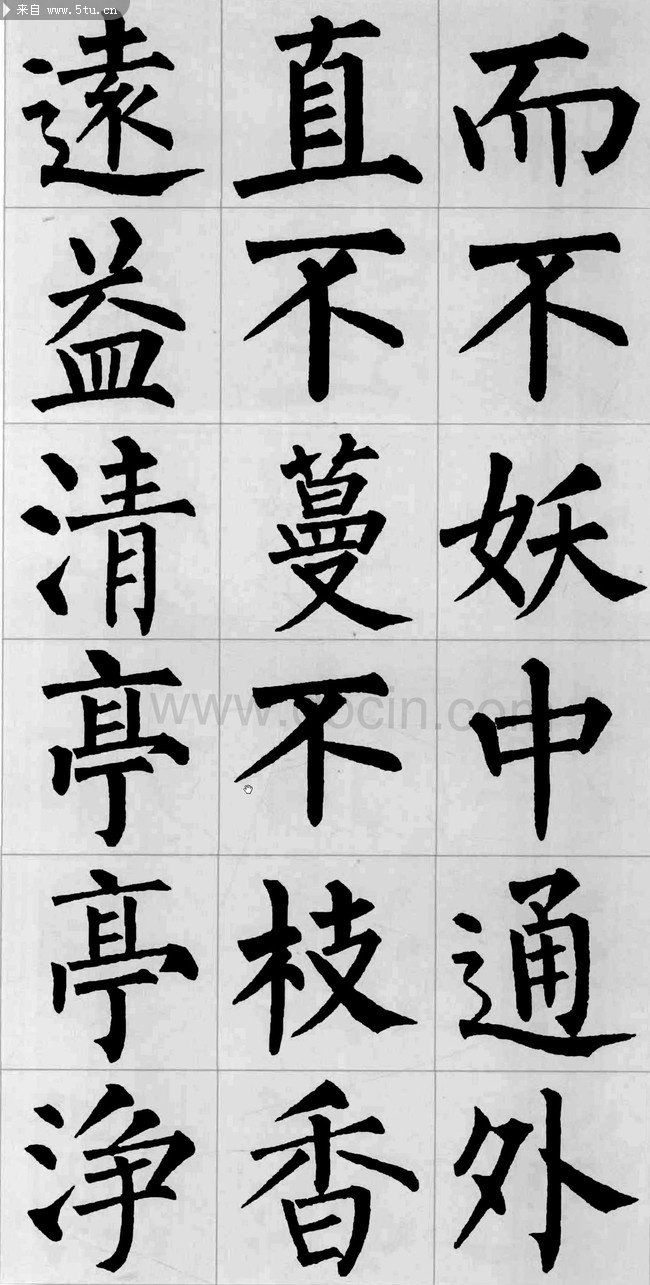 来自 www.5tu.cn
而不妖中通外
直不蔓不枝香
遠益清亭亭淨